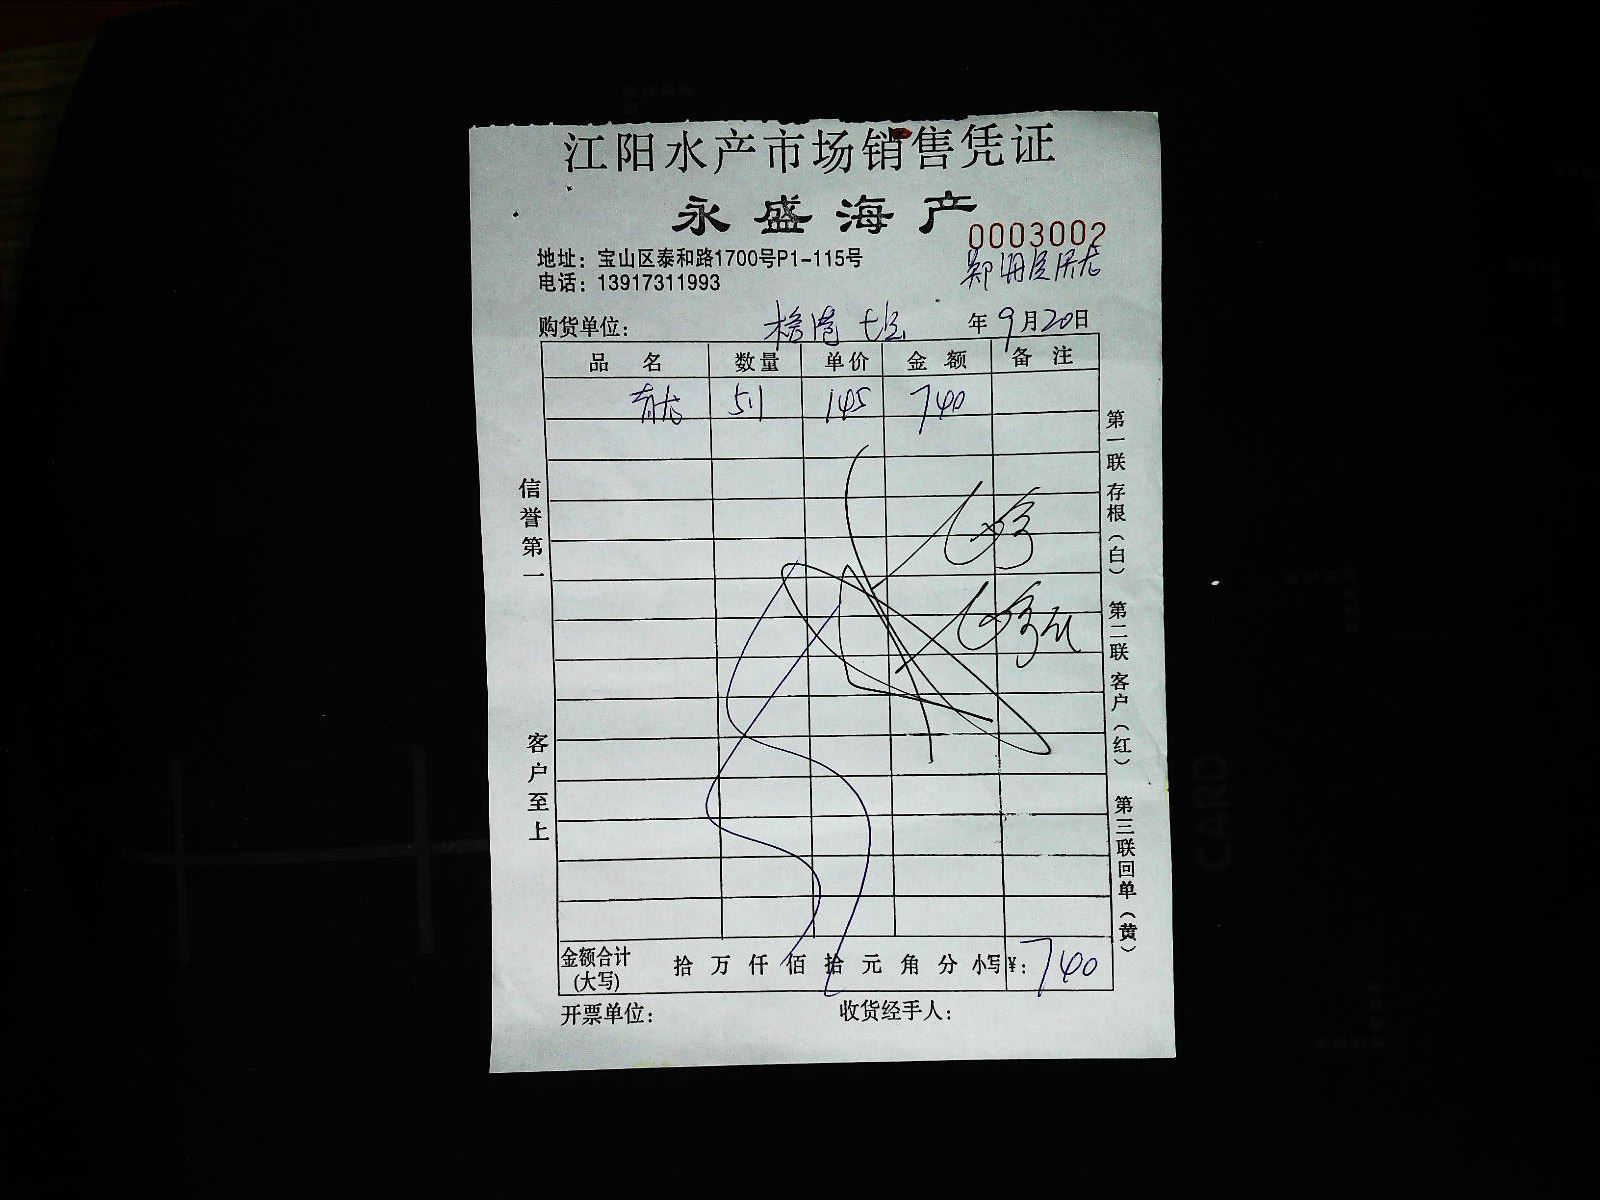 江阳水产市场销售凭证
永盛海产
0003002
地址：宝山区泰和路1700号P1-115号
电话：13917311993
购货单位： 年9月20日
品 名 数量 单价 金 额 备 注
青龙 511 145 740
信誉第一
客户至上
第一联存根（白） 第二联客户（红） 第三联回单（黄）
金额合计(大写) 拾 万 仟 佰 拾 元 角 分 小写¥：740
开票单位： 收货经手人：